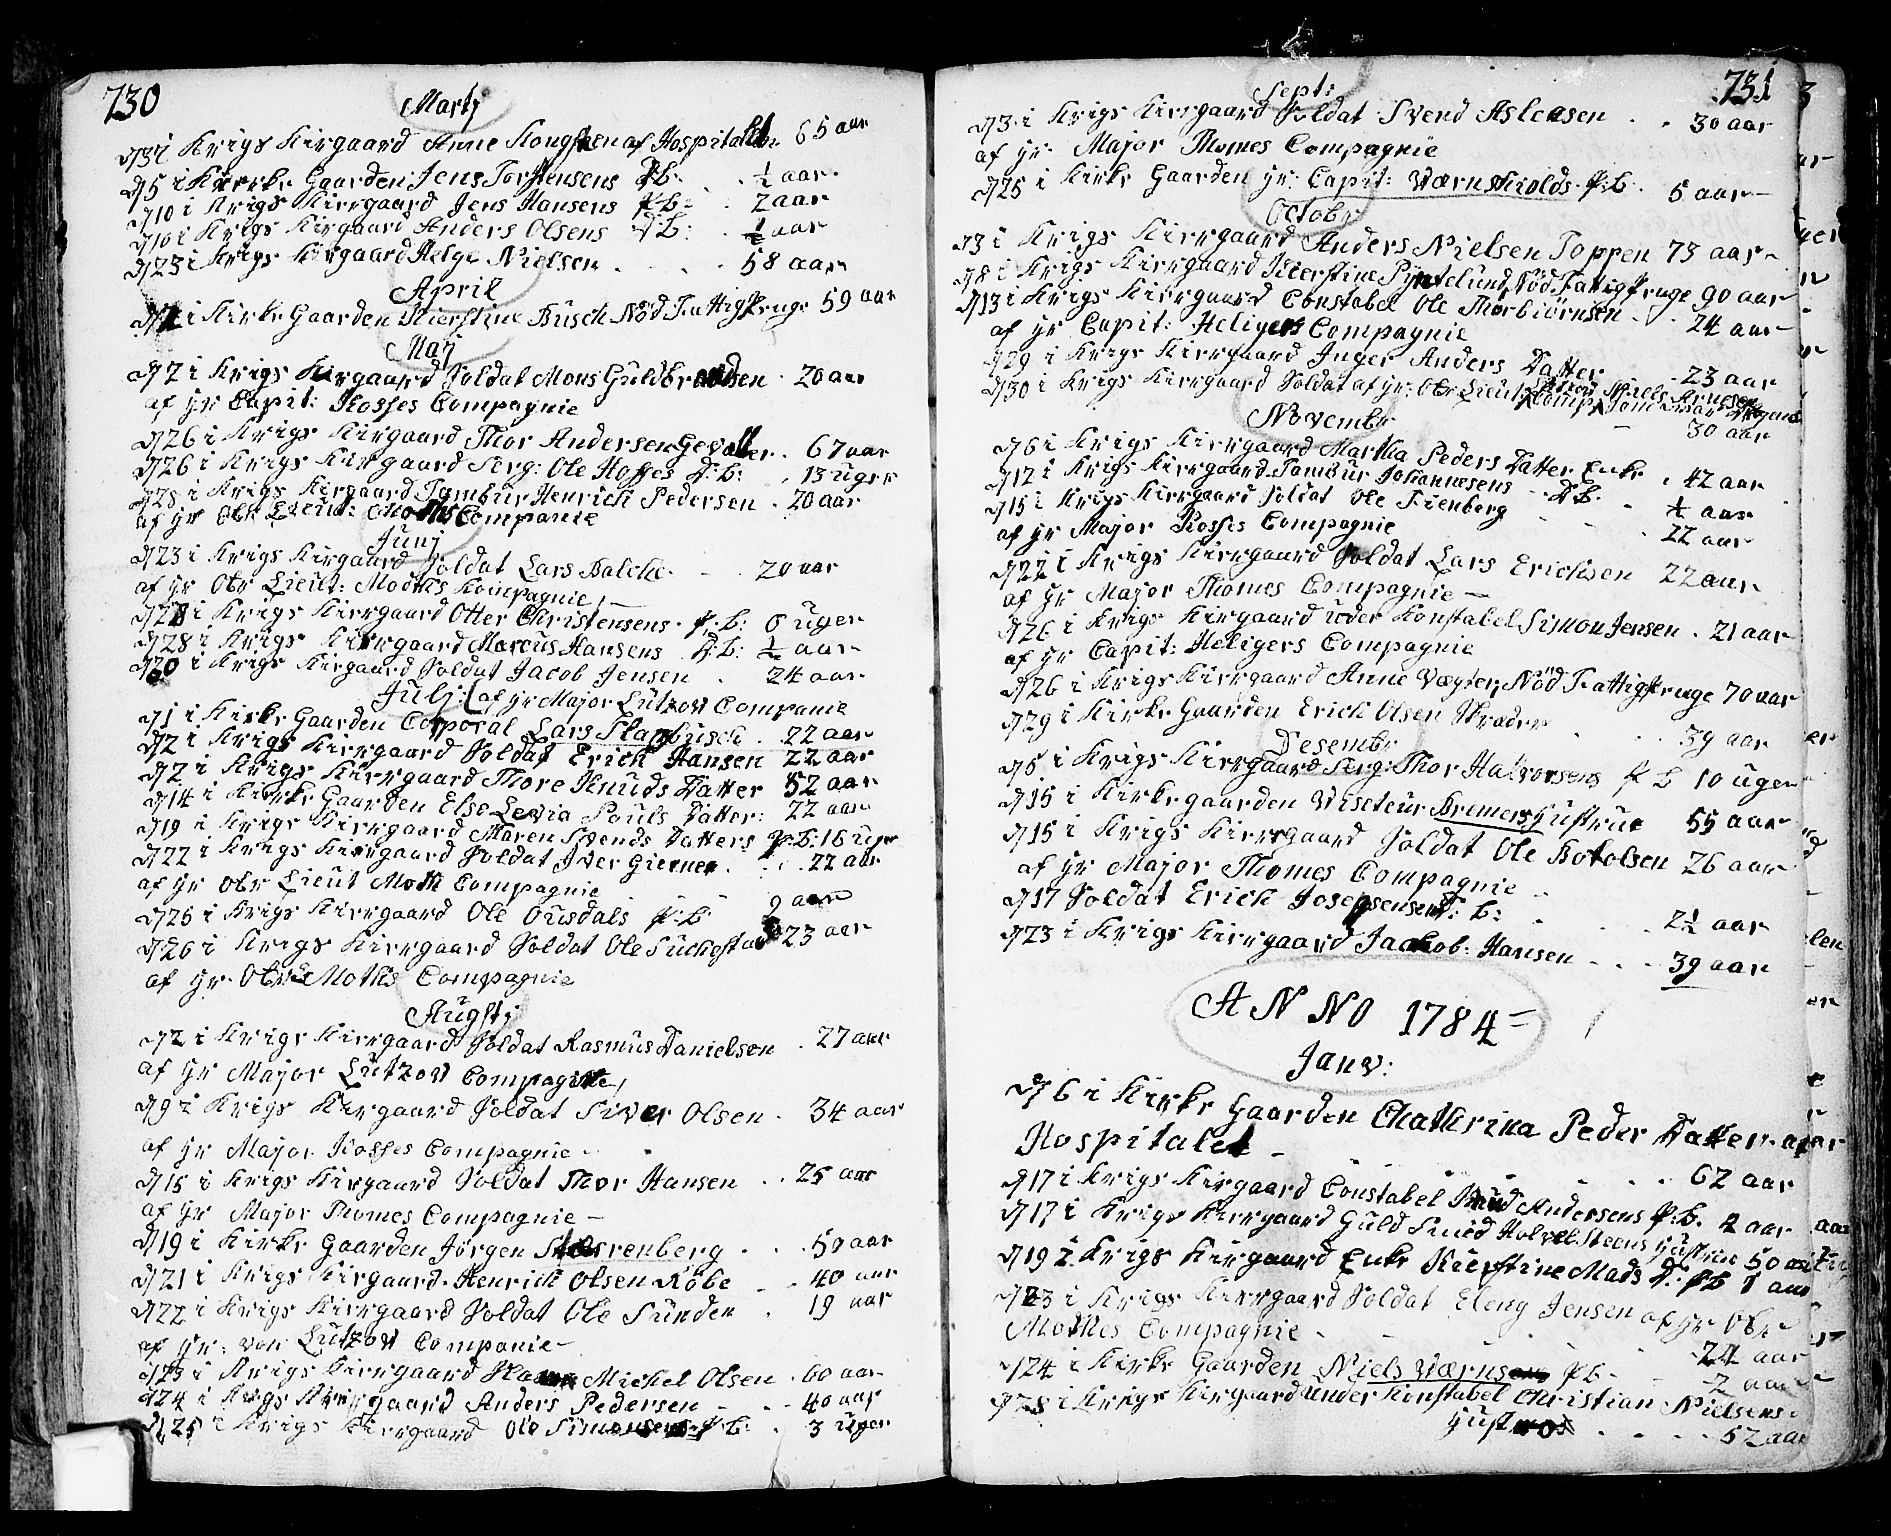 730
Martj
d 3 i Krigs Kirgaard Anne Kongsten af Hospitalet 65 aar
d 5 i Kirke Gaarden Jens Torstensens d: b: ½ aar
d 10 i Krigs Kirrgaard Jens Hansens p b: 2 aar
d 10 i Krigs Kirrgaard Anders Olsens d b: ½ aar
d 23 i Krigs Kirgaard Helge Nielsen 58 aar
April
i Kirke Gaarden Kierstine Busch Nöd Fattig 59 aar
Maj
d 2 i Krigs Kirrgaard Soldat Mons Guldbrandsen 20 aar
af Hr Capit: Rosses Compagnie
d 26 i Krigs Kirrgaard Thor Andersen 67 aar
d 26 i Krigs Kirrgaard Serg: Ole Hoffes d: b: 13 uger
d 28 i Krigs Kirrgaard Tambur Henrich Pedersen 20 aar
af Hr Obr Lieut: Moths Companie
Junj
d 23 i Krigs Kirgaard Soldat Lars Balche 20 aar
af Hr Obr Lieut: Moths Kompagnie
d 28 i Krigs Kirrgaard Otter Christensens p: b: 6 uger
d 28 i Krigs Kirrgaard Marcus Hansens d: b: ½ aar
d 30 i Krigs Kirrgaard Soldat Jacob Jensen 24 aar
Julj: af Hr Major Lutzow Companie
d 1 i Kirke Gaarden Corporal Lars Slambusch 22 aar
d 2 i Krigs Kirrgaard Soldat Erich Hansen 22 aar
d 2 i Krigs Kirrgaard Thore Knuds Datter 52 aar
d 14 i Kirke Gaarden Else Levia Pouls Datter: 22 aar
d 19 i Krigs Kirrgaard Maren Svends Datters p: b: 16 uger
d 22 i Krigs Kirrgaard Soldat Iver Gierner 22 aar
af Hr Obr Lieut Moth Compagnie
d 25 i Krigs Kirrgaard Ole Ousdals p: b: 9 aar
d 26 i Krigs Kirrgaard Soldat Ole Suchestad 23 aar
af Hr Obr: Moths Compagnie
Augstj
d 2 i Krigs Kirrgaard Soldat Rasmus Danielsen 27 aar
af Hr Major Lutzow Compagnie
d 9 i Krigs Kirrgaard Soldat Siver Olsen 34 aar
af Hr Major Rosses Compagnie
d 15 i Krigs Kirrgaard Soldat Thor Hansen 25 aar
af Hr Major Thomes Compagnie
d 19 i Kirke Gaarden Jörgen Störrenberg 50 aar
d 21 i Krigs Kirgaard Henrich Olsen Röbe 40 aar
d 22 i Krigs Kirrgaard Soldat Ole Sunden 19 aar
af Hr: von Lutzow Companie
d 23 i Krigs Kirrgaard Michel Olsen 60 aar
d 24 i Krigs Kirrgaard Anders Pedersen 40 aar
d 25 i Krigs Kirrgaard Ole Simonsens p b: 3 uger
731
Sept:
d 3 i Krigs Kirrgaard Soldat Svend Asleksen 30 aar
af Hr: Major Thomes Compagnie
d 25 i Kirke Gaarden Hr: Capit: Wærnskiolds p: b: 5 aar
Octobr
d 3 i Krigs Kirrgaard Anders Nielsen Toppen 73 aar
d 8 i Krigs Kirrgaard Kierstine Pyntelund Nöd Fattig 90 aar
d 13 i Krigs Kirrgaard Constabel Ole Thorbiörnsen 24 aar
af Hr Capit: Heligers Compagnie
d 29 i Krigs Kirrgaard Inger Anders Datter 23 aar
d 30 i Krigs Kirrgaard Soldat af Hr: Obr Lieut: Comp: Niels Arnesen
30 aar
Novembr
d 6 i Krigs Kirrgaard Martha Peders Datter Enke 42 aar
d 12 i Krigs Kirrgaard Tambur Johannesens d b: ½ aar
d 15 i Krigs Kirrgaard Soldat Ole Fienberg 22 aar
af Hr Major Rosses Compagnie
d 22 i Krigs Kirrgaard Soldat Lars Erichsen 22 aar
af Hr Major Thomes Compagnie
d 26 i Krigs Kirrgaard under Konstabel Simon Jensen 21 aar
af Hr Capit: Heligers Compagnie
d 26 i Krigs Kirrgaard Anne Vægter, Nöd Fattig 70 aar
d 29 i Kirke Gaarden Erich Olsen Skræder 39 aar
Desembr
d 5 i Krigs Kirrgaard Serg: Thor Halvorsens p b 10 uger
d 15 i Kirkegaarden Viseteur Bremers Hustrue 55 aar
d 15 i Krigs Kirrgaard Soldat Ole Botolsen 26 aar
af Hr Major Thomes Compagnie
d 17 Soldat Erich Josepsens d: b: 2½ aar
d 23 i Krigs Kirrgaard Jacob: Hansen 39 aar
ANNO 1784
Janv:
d 6 i Kirke Gaarden Chathrina Peder Datter af
Hospitalet 62 aar
d 17 i Krigs Kirgaard Constabel Knud Andersens p: b. 2 aar
d 17 i Krigs Kirrgaard Guld Smed Holvel Steens Hustrue 50 aar
d 19 i Krigs Kirgaard Enke Kierstine Mads D: p b 1 aar
d 23 i Krigs Kirrgaard Soldat Eleng Jensen af Hr Obr
Mothes Compagnie 22 aar
d 24 i Kirke Gaarden Niels Wærns p b 2 aar
d 28 i Krigs Kirgaard under Konstabel Christian Nielsens
Hustroe 52 aar